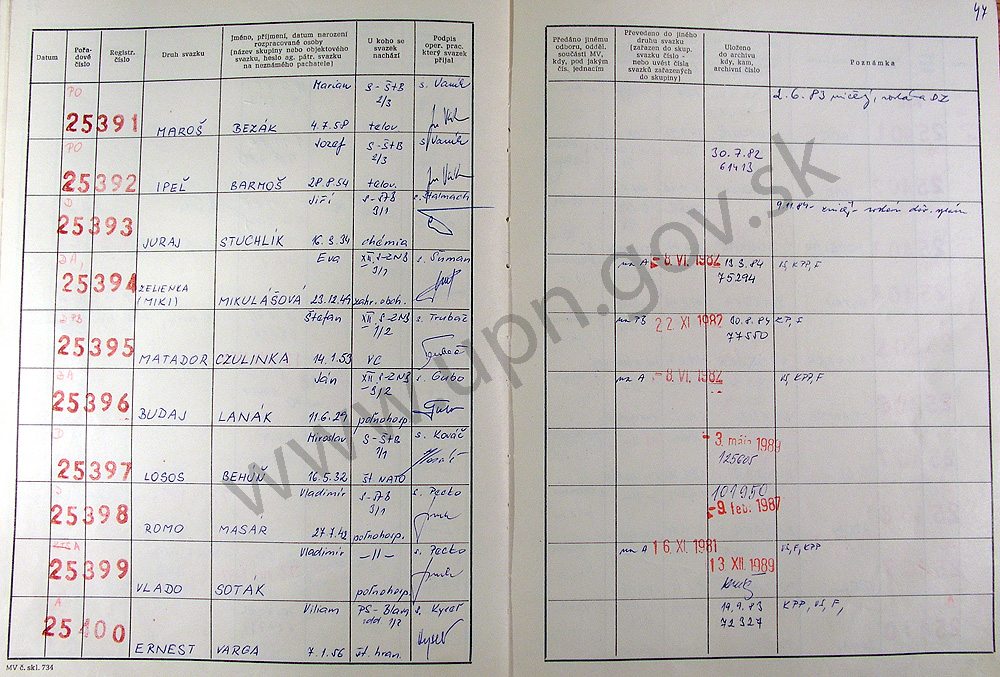 44
Datum
Pořa-
dové
číslo
Registr.
číslo
Druh svazku
Jméno, příjmení, datum narození
rozpracované osoby
(název skupiny nebo objektového
svazku, heslo ag. pátr. svazku
na neznámého pachatele)
U koho se
svazek
nachází
Podpis
oper. prac.
který svazek
přijal
Předáno jinému
odboru, odděl.
součásti MV,
kdy, pod jakým
čís. jednacím
Převedeno do jiného
druhu svazku
(zařazen do skup.
svazku číslo -
nebo uvést čísla
svazků zařazených
do skupiny)
Uloženo
do archivu
kdy, kam,
archivní číslo
Poznámka
PO
25391
MAROŠ
Marián
BEZÁK 4.7.58
S-ŠtB
2/3
telov.
s. Vaník
2.6.83
PO
25392
IPEĽ
Jozef
BARMOŠ 28.8.54
S-ŠtB
2/3
telov.
s. Vaník
30.7.82
61413
D
25393
JURAJ
Jiří
STUCHLÍK 16.9.34
S-ŠtB
3/1
chémia
s. Stalmach
9.11.84-
DA,
25394
ZELIENKA
(MIKI)
Eva
MIKULÁŠOVÁ 23.12.49
XII. S-ZNB
3/1
zahr. obch.
s. Šuman
na A
-8. VI. 1982
19.3.84
75294
VŠ, KPP, F
DPB
25395
MATADOR
Štefan
CZULINKA 14.1.53
XII S-ZNB
1/2
VC
s. Trubač
na TB
22. XI 1982
30.8.84
77550
KP, F
DA
25396
BUDAJ
Ján
LANÁK 11.6.29
XII. S-ZNB
3/2
poľnohosp.
s. Gubo
na A
-8. VI. 1982
VŠ, KPP, F
D
25397
LOSOS
Miroslav
BEHUŇ 16.5.32
S-ŠtB
1/1
št. NATO
s. Kováč
-3. mája 1989
125605
25398
ROMO
Vladimír
MASAR 27.7.42
S-ŠtB
3/1
poľnohosp.
s. Pecko
101950
-9. feb. 1987
25399
VLADO
Vladimír
SOTÁK
-//-
poľnohosp.
s. Pecko
na A
16. XI. 1981
13 XII. 1989
VŠ, F, KPP
A
25400
ERNEST
Viliam
VARGA 7.1.56
PS-Blava
odd 1/2
št. hran.
s. Kyseľ
Kyseľ
19.9.83
72327
KPP, VŠ, F,
MV č. skl. 734
www.upn.gov.sk